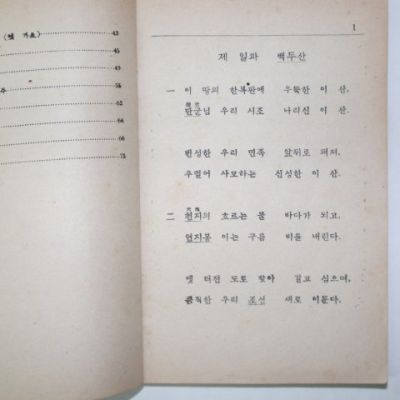 (옛 가요)‥‥‥‥43
‥‥‥‥45
‥‥‥‥49
주‥‥‥‥56
‥‥‥‥62
‥‥‥‥64
‥‥‥‥66
‥‥‥‥75
1
제 일과 백두산
一 이 땅의 한복판에 우뚝한 이 산,
檀君
단군님 우리 시조 나리신 이 산.
번성한 우리 민족 앞뒤로 퍼져,
우럴어 사모하는 신성한 이 산.
二 천지의 흐르는 물 바다가 되고,
이는 구름 비를 내린다.
옛 터전 도로 찾아 길고 심으며,
우리 조선 새로 이룬다.